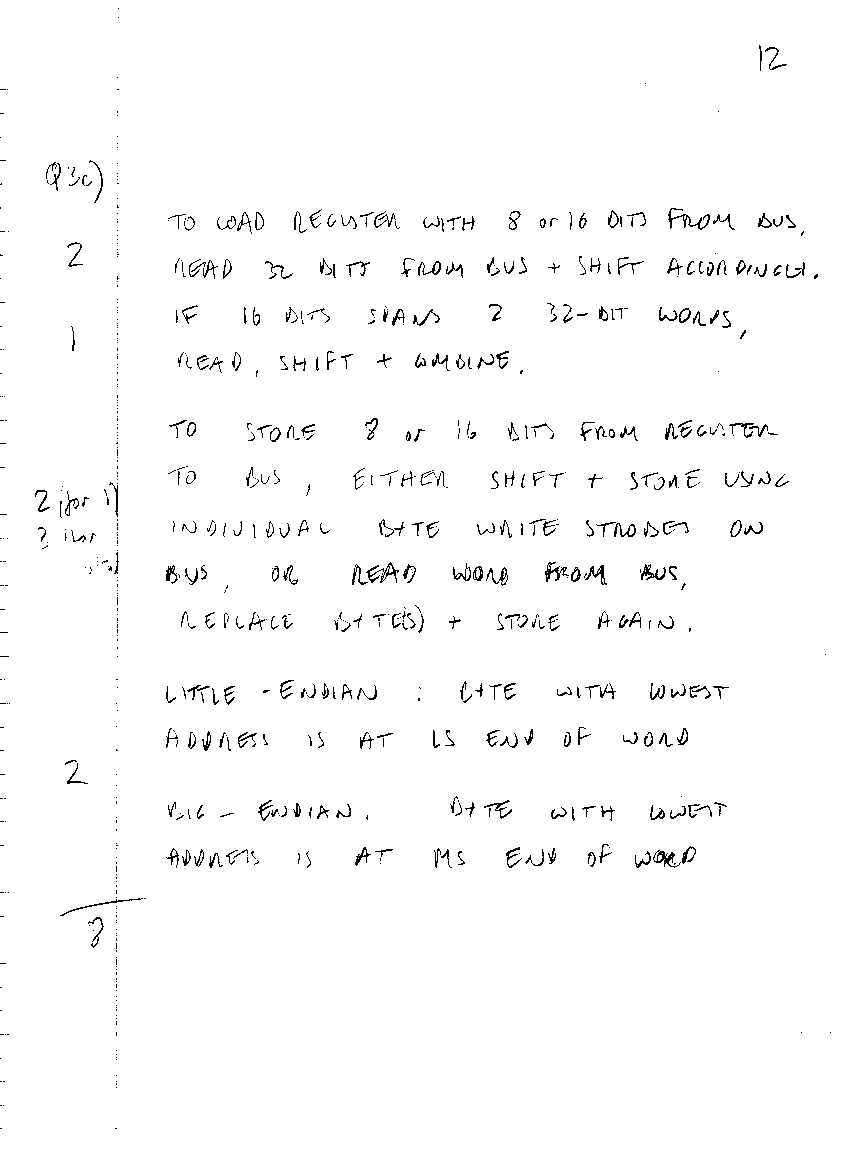 12
Q3c)
TO LOAD REGISTER WITH 8 or 16 BITS FROM BUS,
2 READ 32 BITS FROM BUS + SHIFT ACCORDINGLY.
IF 16 BITS SPANS 2 32-BIT WORDS,
1 READ, SHIFT + COMBINE.
TO STORE 8 or 16 BITS FROM REGISTER
TO BUS, EITHER SHIFT + STORE USING
2 (for 1) INDIVIDUAL BYTE WRITE STROBES ON
BUS, OR READ WORD FROM BUS,
REPLACE BYTE(S) + STORE AGAIN.
LITTLE-ENDIAN : BYTE WITH LOWEST
ADDRESS IS AT LS END OF WORD
2
BIG-ENDIAN. BYTE WITH LOWEST
ADDRESS IS AT MS END OF WORD